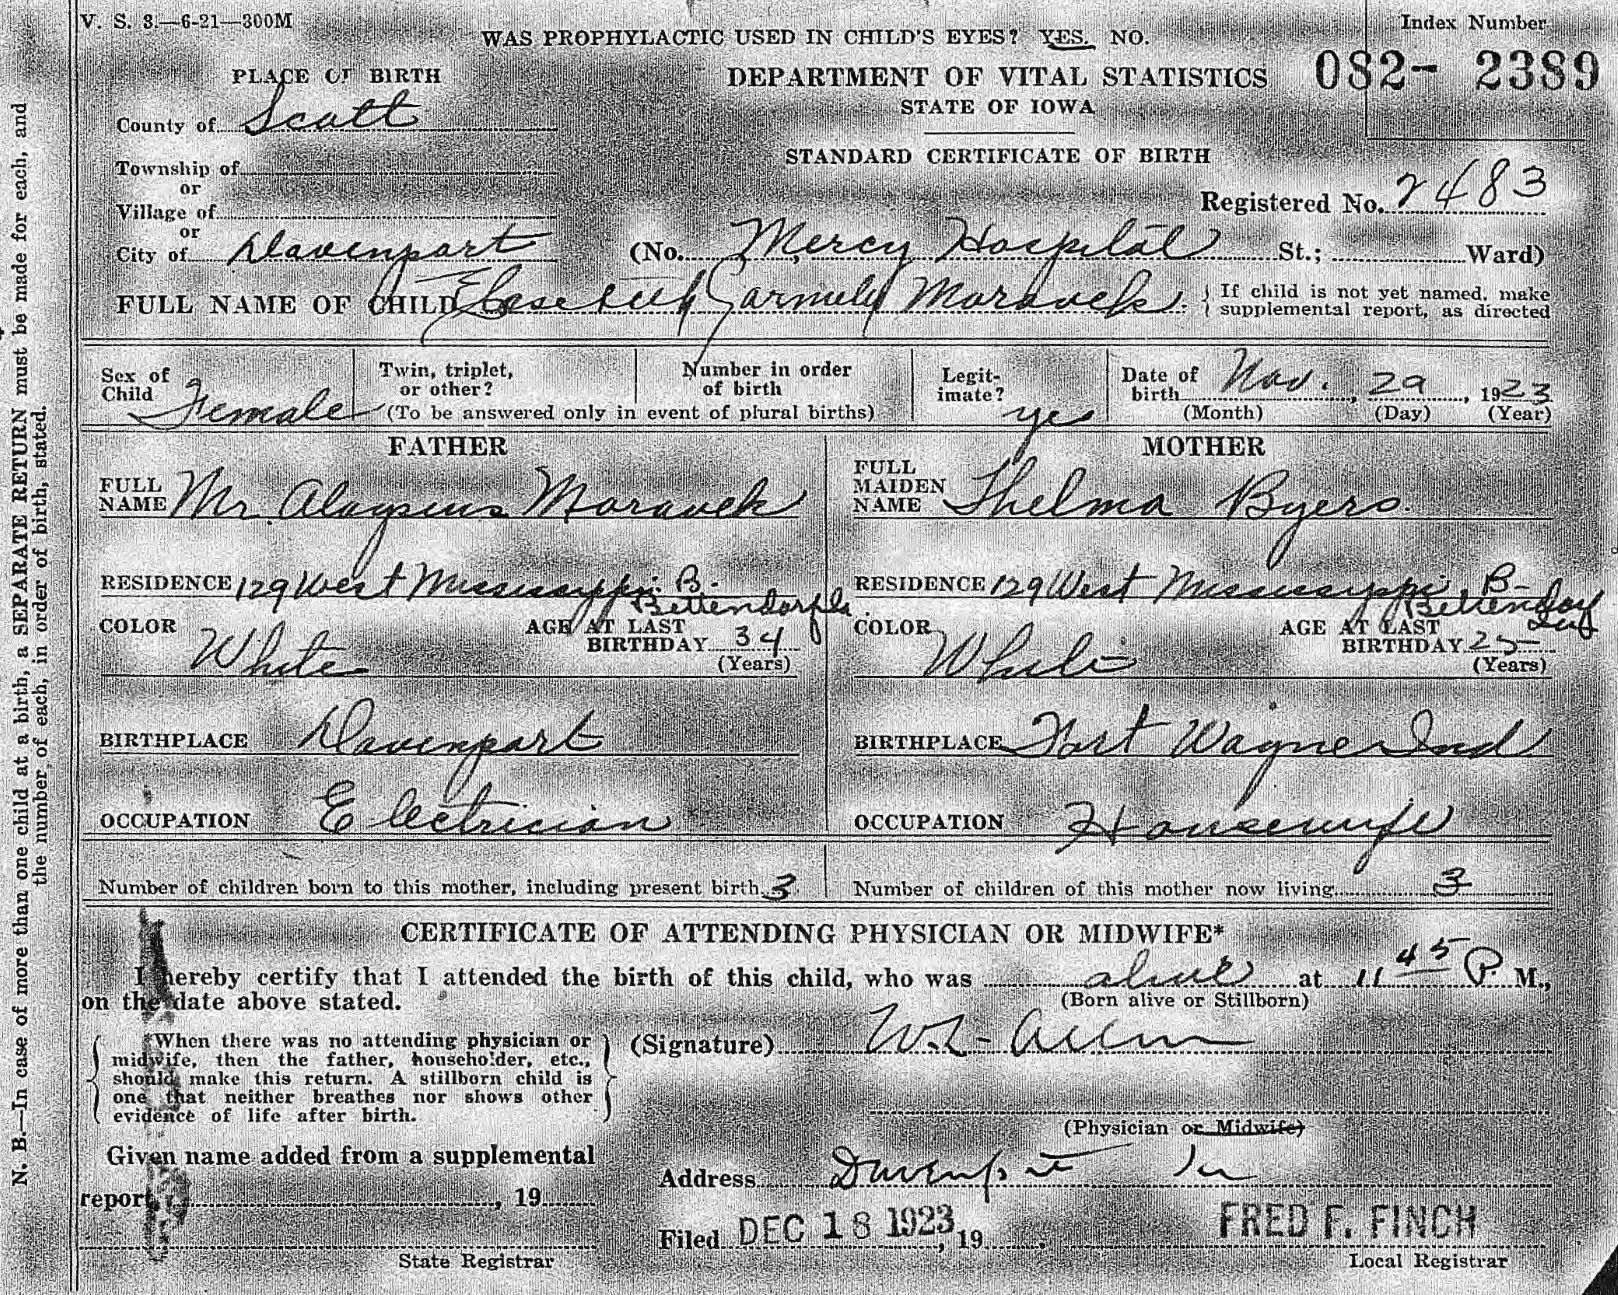 V. S. 3.—6-21—300M
WAS PROPHYLACTIC USED IN CHILD'S EYES? YES. NO.
Index Number
082- 2389
PLACE OF BIRTH
DEPARTMENT OF VITAL STATISTICS
STATE OF IOWA
County of Scott
STANDARD CERTIFICATE OF BIRTH
Township of
or
Registered No. 2483
Village of
or
City of Davenport (No. Mercy Hospital St.; Ward)
FULL NAME OF CHILD Moravek { If child is not yet named, make
supplemental report, as directed
Sex of
Child Female
Twin, triplet,
or other?
Number in order
of birth
(To be answered only in event of plural births)
Legit-
imate? yes
Date of
birth Nov. , 29 , 1923
(Month) (Day) (Year)
FATHER
FULL
NAME Mr. Aloysius Moravek
RESIDENCE 129 West Mississippi B.
Bettendorf Ia.
COLOR White
AGE AT LAST
BIRTHDAY 34
(Years)
BIRTHPLACE Davenport
OCCUPATION Electrician
MOTHER
FULL
MAIDEN
NAME Thelma Byers.
RESIDENCE 129 West Mississippi B-
Bettendorf
COLOR White
AGE AT LAST
BIRTHDAY 25
(Years)
BIRTHPLACE Fort Wayne Ind
OCCUPATION Housewife
Number of children born to this mother, including present birth 3
Number of children of this mother now living 3
CERTIFICATE OF ATTENDING PHYSICIAN OR MIDWIFE*
I hereby certify that I attended the birth of this child, who was alive at 11 45 P. M.,
on the date above stated.
(Born alive or Stillborn)
{ When there was no attending physician or
midwife, then the father, householder, etc.,
should make this return. A stillborn child is
one that neither breathes nor shows other
evidence of life after birth. }
(Signature) W.L. Allen
(Physician or Midwife)
Given name added from a supplemental
report , 19
State Registrar
Address Davenport Ia
Filed DEC 18 1923, 19 .
FRED F. FINCH
Local Registrar
N. B.—In case of more than one child at a birth, a SEPARATE RETURN must be made for each, and
the number of each, in order of birth, stated.